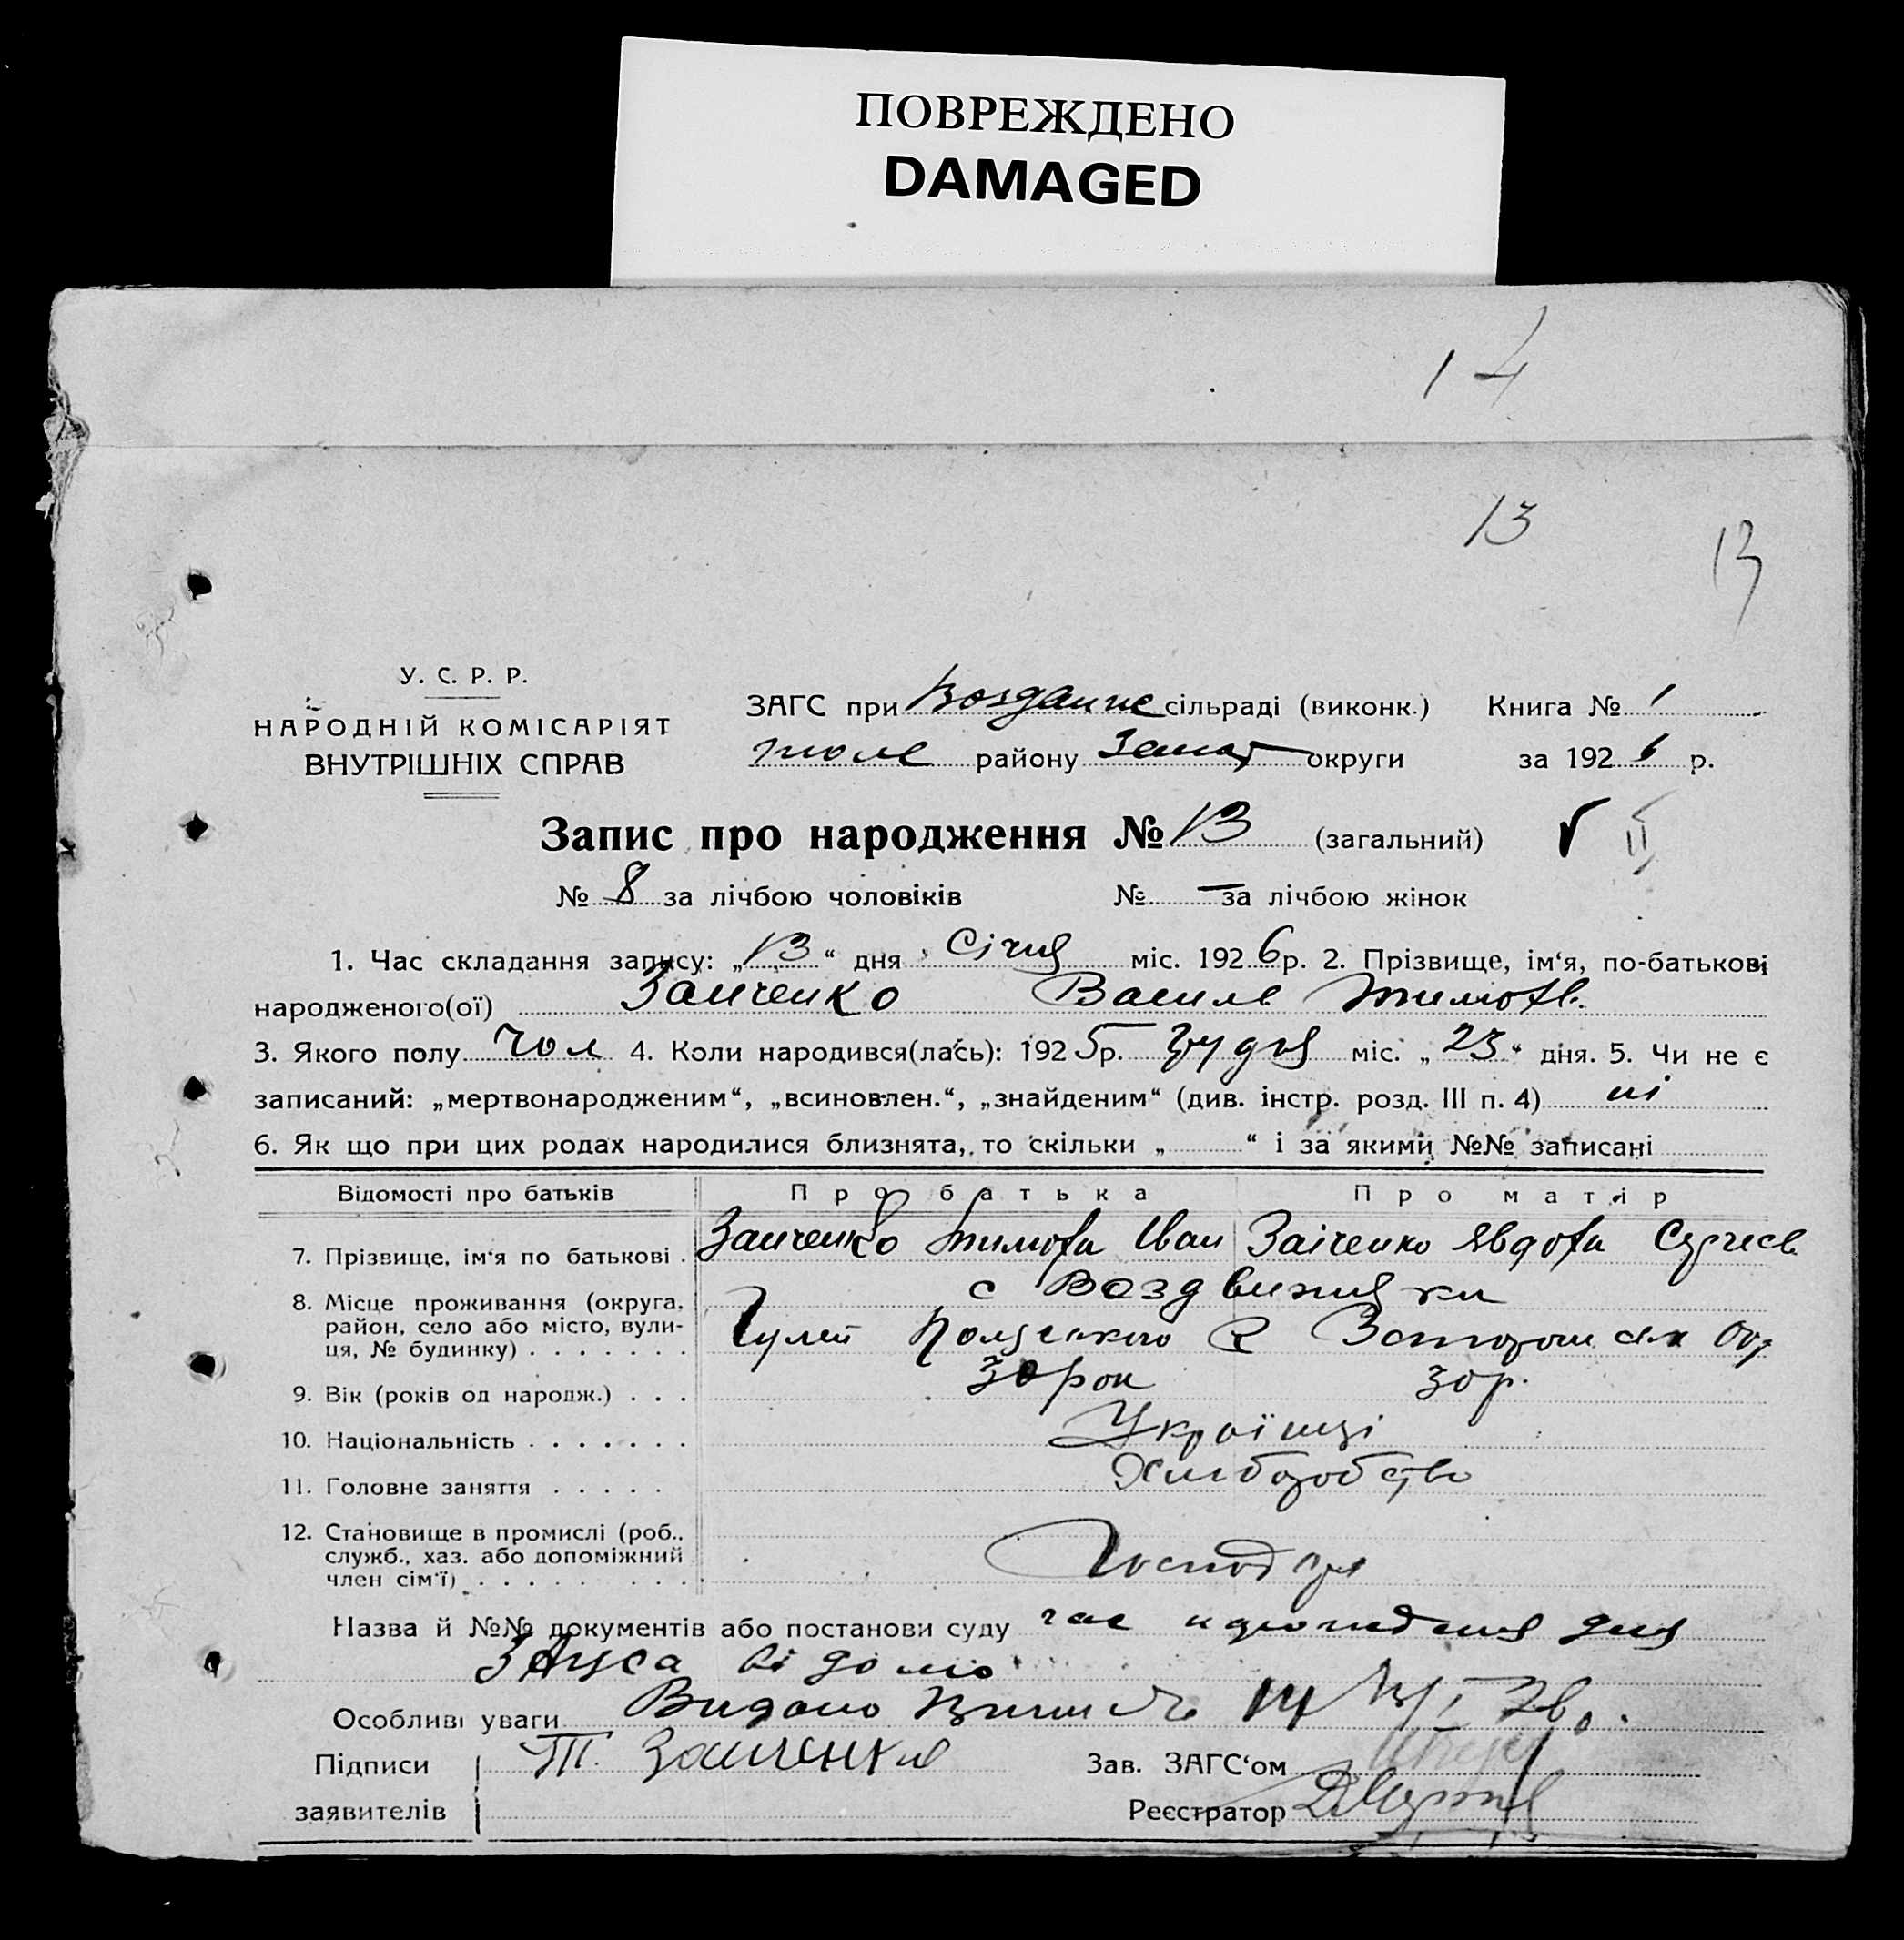 ПОВРЕЖДЕНО
DAMAGED
14
13
13
У. С. Р. Р.
НАРОДНІЙ КОМІСАРІЯТ
ВНУТРІШНІХ СПРАВ
ЗАГС при сільраді (виконк.) Книга № 1
району округи за 1926 р.
Запис про народження № 13 (загальний) V II
№ 8 за лічбою чоловіків № — за лічбою жінок
1. Час складання запису: „13“ дня Січня міс. 1926 р. 2. Прізвище, ім‘я, по-батькові
народженого(ої) Заиченко Василь Тимофі.
3. Якого полу Чол 4. Коли народився(лась): 1925 р. Грудня міс. „23“ дня. 5. Чи не є
записаний: „мертвонародженим“, „всиновлен.“, „знайденим“ (див. інстр. розд. III п. 4) ні
6. Як що при цих родах народилися близнята, то скільки „ “ і за якими №№ записані
Відомості про батьків Про батька Про матір
7. Прізвище, ім‘я по батькові . Заиченко Тимофи Иван Заіченко Явдоха
8. Місце проживання (округа, с Воздвижнявки
район, село або місто, вули-
ця, № будинку) . . . . . . . Гуляй Польского Р Запорошск
9. Вік (років од народж.) . . . 30 рок 30 р.
10. Національність . . . . . . . Українці
11. Головне заняття . . . . . Хлиборобство
12. Становище в промислі (роб.,
служб., хаз. або допоміжний Господар
член сім‘ї) . . . . . . . . .
Назва й №№ документів або постанови суду для
ЗАгса відомо
Особливі уваги Видано №
Підписи Т. Заиченко Зав. ЗАГС‘ом
заявителів Реєстратор